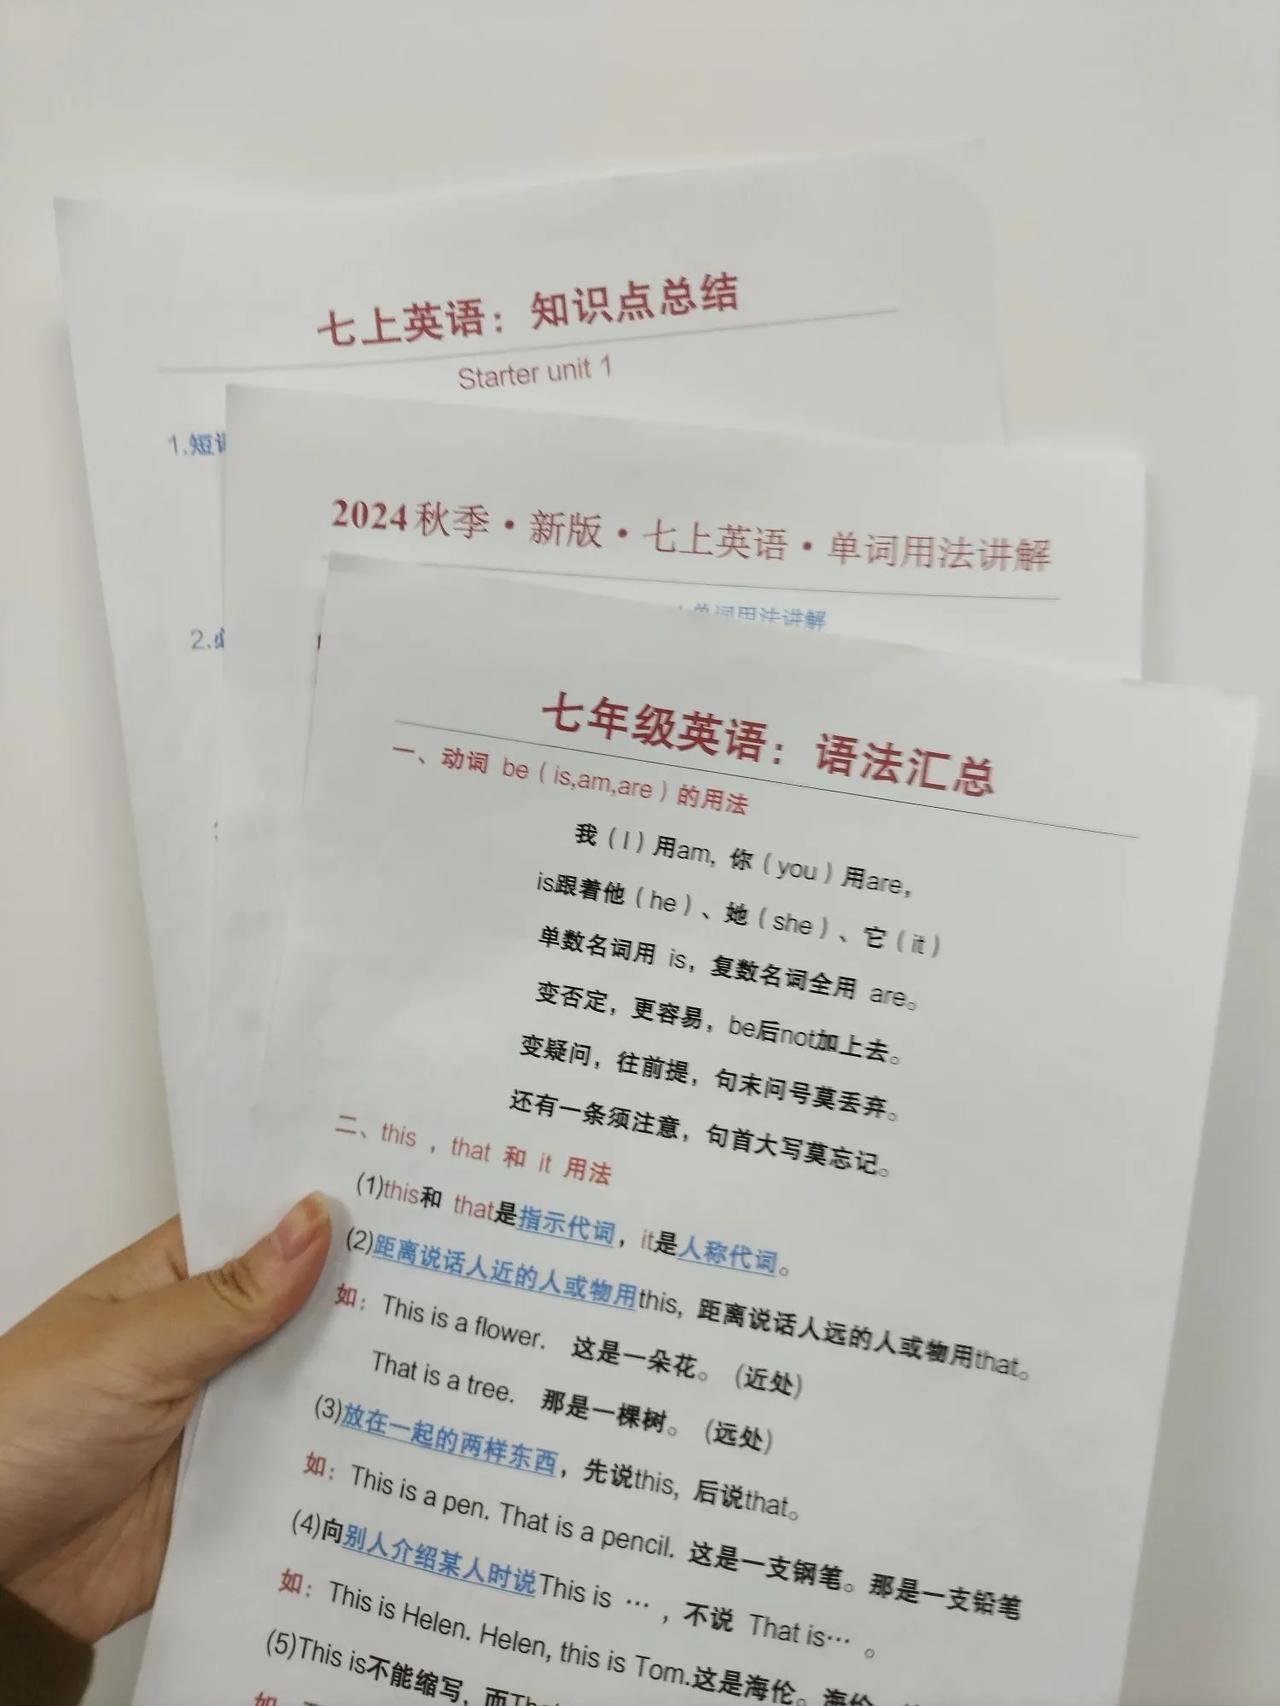 七上英语：知识点总结
Starter unit 1
1.短
2.
2024秋季·新版·七上英语·单词用法讲解
单词用法讲解
七年级英语：语法汇总
一、动词 be（is,am,are）的用法
我（I）用am, 你（you）用are,
is跟着他（he）、她（she）、它（it）
单数名词用 is，复数名词全用 are。
变否定，更容易，be后not加上去。
变疑问，往前提，句末问号莫丢弃。
还有一条须注意，句首大写莫忘记。
二、this ，that 和 it 用法
(1)this和 that是指示代词，it是人称代词。
(2)距离说话人近的人或物用this, 距离说话人远的人或物用that。
如：This is a flower. 这是一朵花。(近处)
That is a tree. 那是一棵树。(远处)
(3)放在一起的两样东西，先说this, 后说that。
如：This is a pen. That is a pencil. 这是一支钢笔。那是一支铅笔
(4)向别人介绍某人时说This is …，不说 That is…。
如：This is Helen. Helen, this is Tom.这是海伦。海伦，
(5)This is不能缩写，而
如